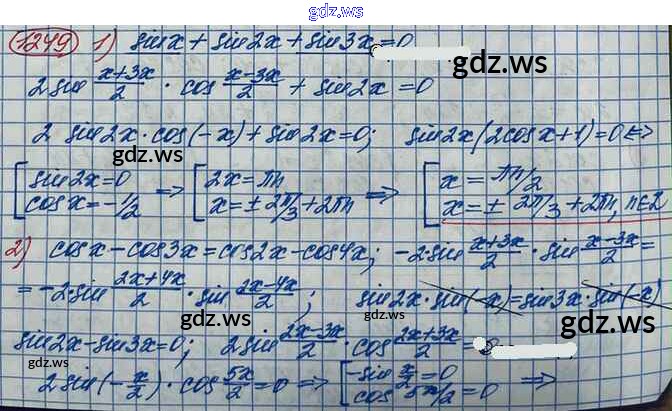 gdz.ws
1249 1) sin x + sin 2x + sin 3x = 0
gdz.ws
2 sin (x+3x)/2 · cos (x-3x)/2 + sin 2x = 0
2 sin 2x · cos(-x) + sin 2x = 0; sin 2x (2cos x + 1) = 0 <=>
gdz.ws
[ sin 2x = 0 => [ 2x = πn => [ x = πn/2
cos x = -1/2 x = ± 2π/3 + 2πn x = ± 2π/3 + 2πn, n∈Z
gdz.ws
2) cos x - cos 3x = cos 2x - cos 4x; -2·sin (x+3x)/2 · sin (x-3x)/2 =
gdz.ws
= -2·sin (2x+4x)/2 · sin (2x-4x)/2; sin 2x · sin(-x) = sin 3x · sin(-x)
gdz.ws
gdz.ws
sin 2x - sin 3x = 0; 2 sin (2x-3x)/2 · cos (2x+3x)/2 =
gdz.ws
2 sin(-x/2) · cos 5x/2 = 0 => [ -sin x/2 = 0 =>
cos 5x/2 = 0
gdz.ws